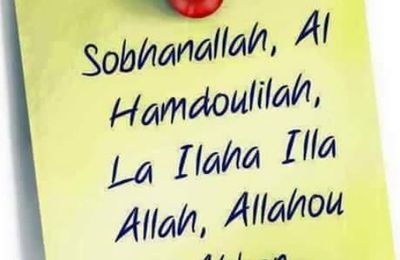 Sobhanallah, Al
Hamdoulilah,
La Ilaha Illa
Allah, Allahou